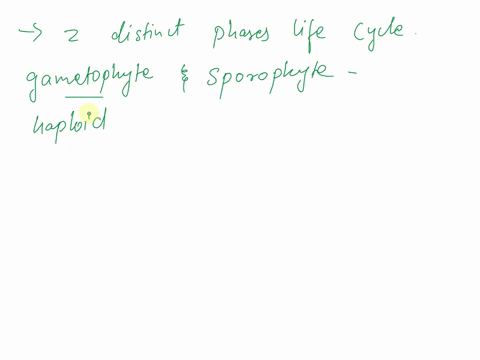 → 2 distinct phases life cycle.
gametophyte & sporophyte -
haploid